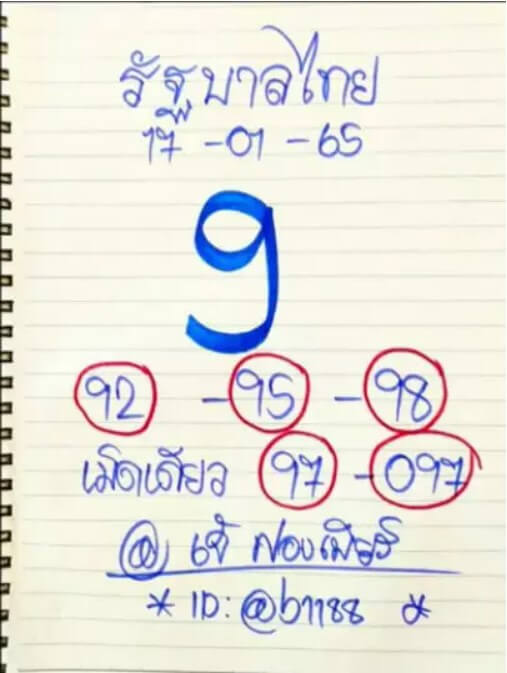 รัฐบาลไทย
17 - 01 - 65
9
92 - 95 - 98
เม็ดเดียว 97 - 097
@ เจ๊ ฟองเบียร์
* ID: @b1188 *